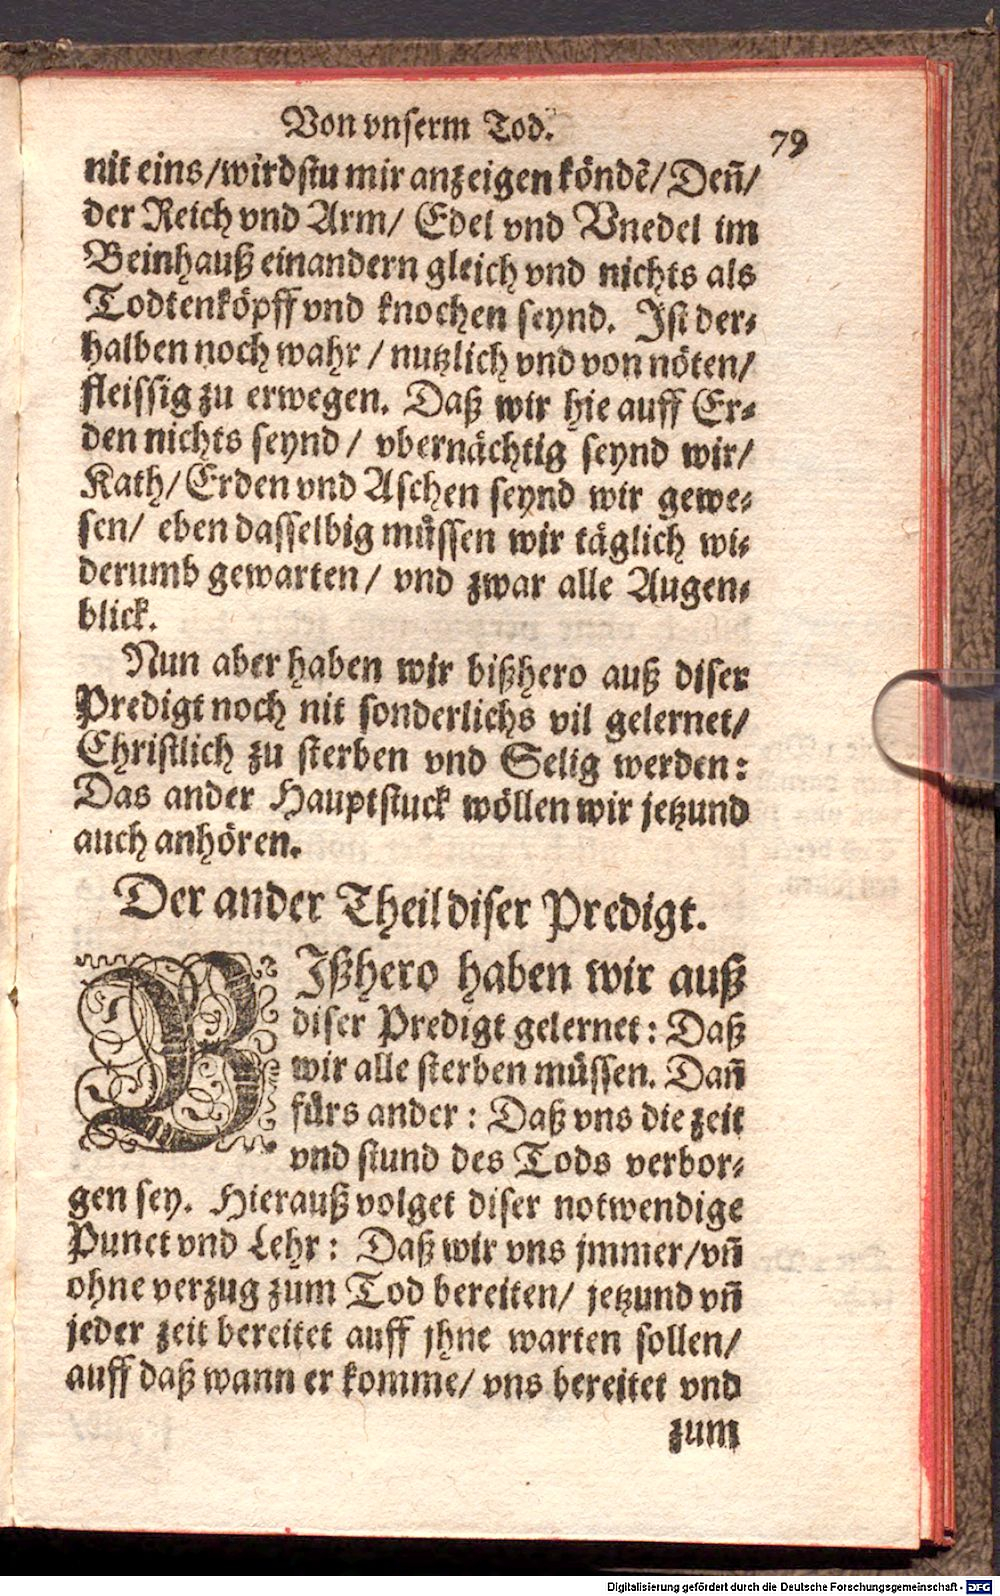 Von vnserm Tod.
79
nit eins/wirdstu mir anzeigen köndẽ/Deñ/
der Reich vnd Arm/ Edel vnd Vnedel im
Beinhauß einandern gleich vnd nichts als
Todtenköpff vnd knochen seynd. Ist der-
halben noch wahr / nutzlich vnd von nöten/
fleissig zu erwegen. Daß wir hie auff Er-
den nichts seynd / vbernächtig seynd wir/
Kath/Erden vnd Aschen seynd wir gewe-
sen/ eben dasselbig müssen wir täglich wi-
derumb gewarten / vnd zwar alle Augen-
blick.
Nun aber haben wir bißhero auß diser
Predigt noch nit sonderlichs vil gelernet/
Christlich zu sterben vnd Selig werden:
Das ander Hauptstuck wöllen wir jetzund
auch anhören.
Der ander Theil diser Predigt.
BIßhero haben wir auß
diser Predigt gelernet: Daß
wir alle sterben müssen. Dañ
fürs ander: Daß vns die zeit
vnd stund des Tods verbor-
gen sey. Hierauß volget diser notwendige
Punct vnd Lehr: Daß wir vns jmmer/vñ
ohne verzug zum Tod bereiten/ jetzund vñ
jeder zeit bereitet auff jhne warten sollen/
auff daß wann er komme/ vns bereitet vnd
zum
Digitalisierung gefördert durch die Deutsche Forschungsgemeinschaft - DFG